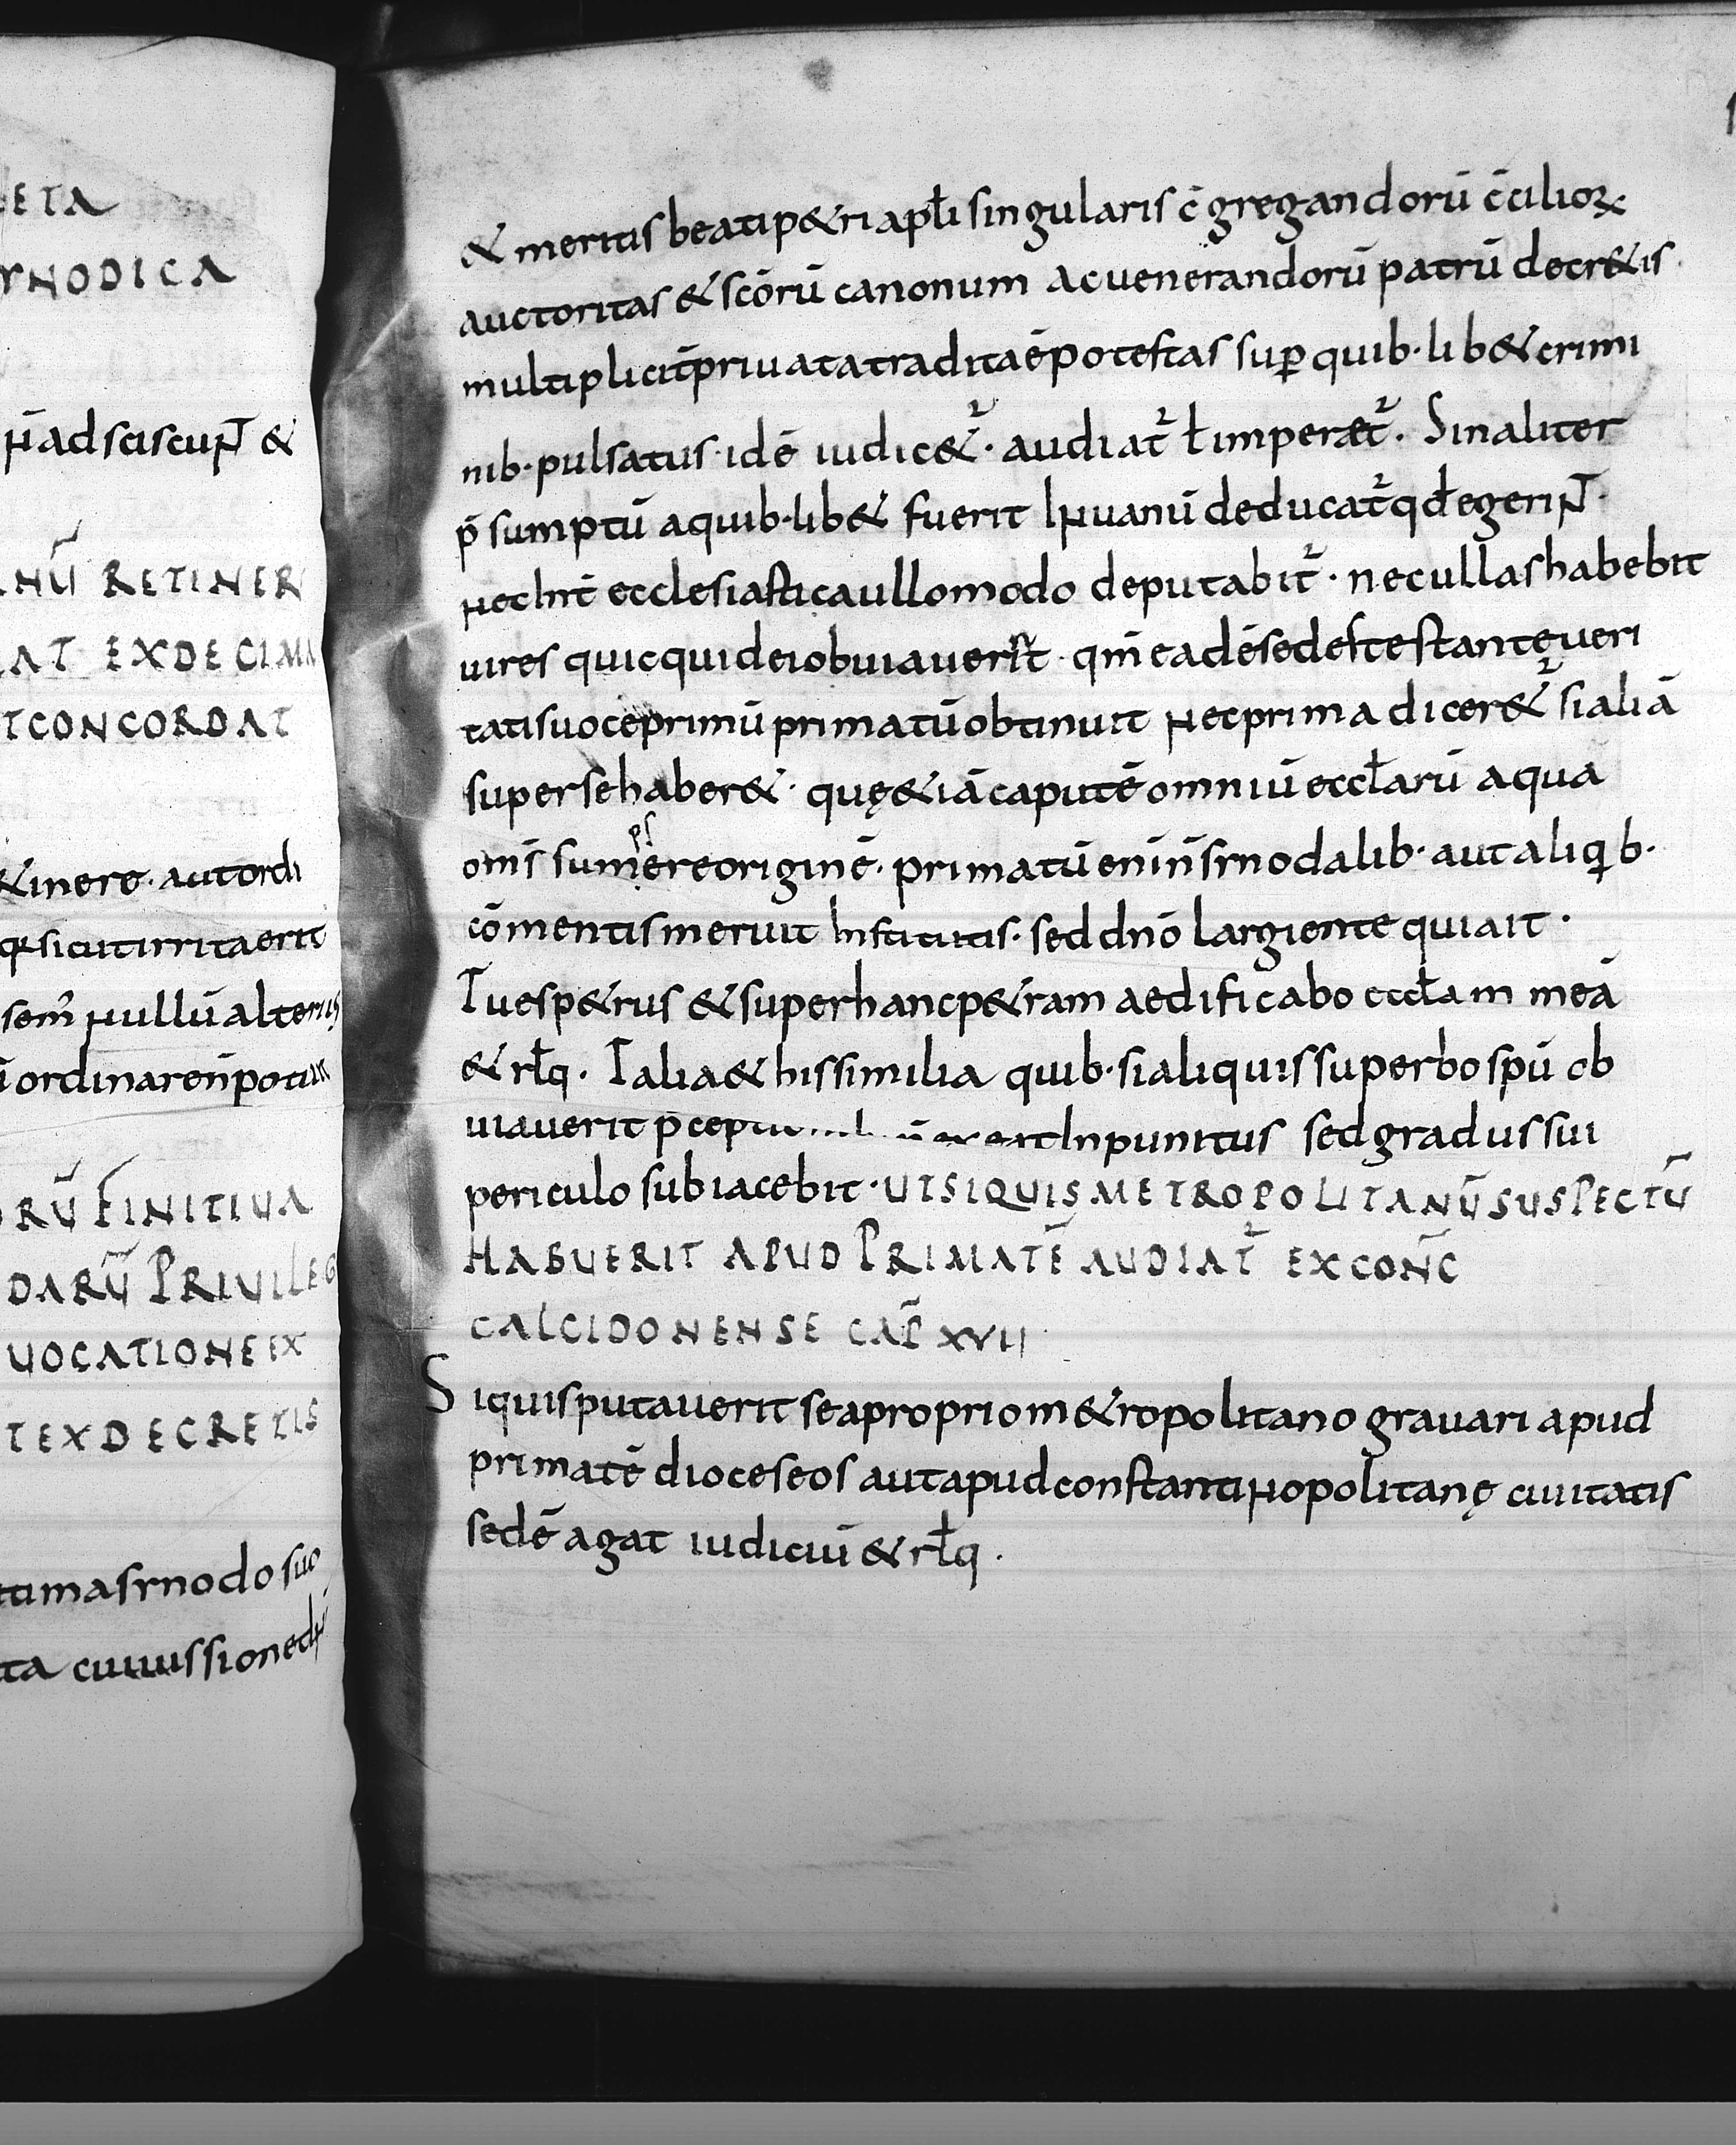 ETA
YNODICA
n̄ adsciscunt̄ &
NŪ RETINER
AT EXDECIMA
TCONCORDAT
&inere· aut ordi
sicut irrita erit
sem̄ nullū alterius
ordinare n̄ potuit
ORŪ FINITIUA
DARŪ PRIUILEG
UOCATIONE EX
T EX DECRETIS
tima synodo suo
ta
& meritis beati p&ri apłi singularis c̄gregandorū c̄cilioꝝ
auctoritas & scōrū canonum ac uenerandorū patrū decr&is·
multiplicit̄ priuata tradita ē potestas sup̄ quib· lib& crimi
nib· pulsatus· idē iudic&ᷣ· audiat̉ ł imperæt̉· Sin aliter
p̄sumptū a quib· lib& fuerit In uanū deducat̉ qđ egerint̄·
nec Int̄ ecclesiastica ullo modo deputabit̉· nec ullas habebit
uires quicquid ei obuiauerit· qm̄ eadē sedes testante ueri
tatis uoce primū primatū obtinuit nec prima dicer&ᷣ si aliā
super se haber&· quę & iā caput ē omniū eccłarū a qua
om̄s sumpsere originē· primatū enī n̄ synodalib· aut aliqꝫ b·
cōmentis meruit Institutis· sed dn̄o largiente qui ait·
Tu es p&rus & super hanc p&ram aedificabo eccłam meā
& rłq· Talia & his similia quib· si aliquis superbo spū ob
uiauerit p̄cepti Inpunitus sed gradus sui
periculo subiacebit· UT SI QUIS METROPOLITANŪ SUSPECTŪ
HABUERIT APUD PRIMATĒ AUDIAT̉ EX CONC̄
CALCIDONENSE CAP̄ XVII
Si quis putauerit se a proprio m&ropolitano grauari apud
primatē dioceseos aut apud constantinopolitanę ciuitatis
sedē agat iudiciū & rłq·